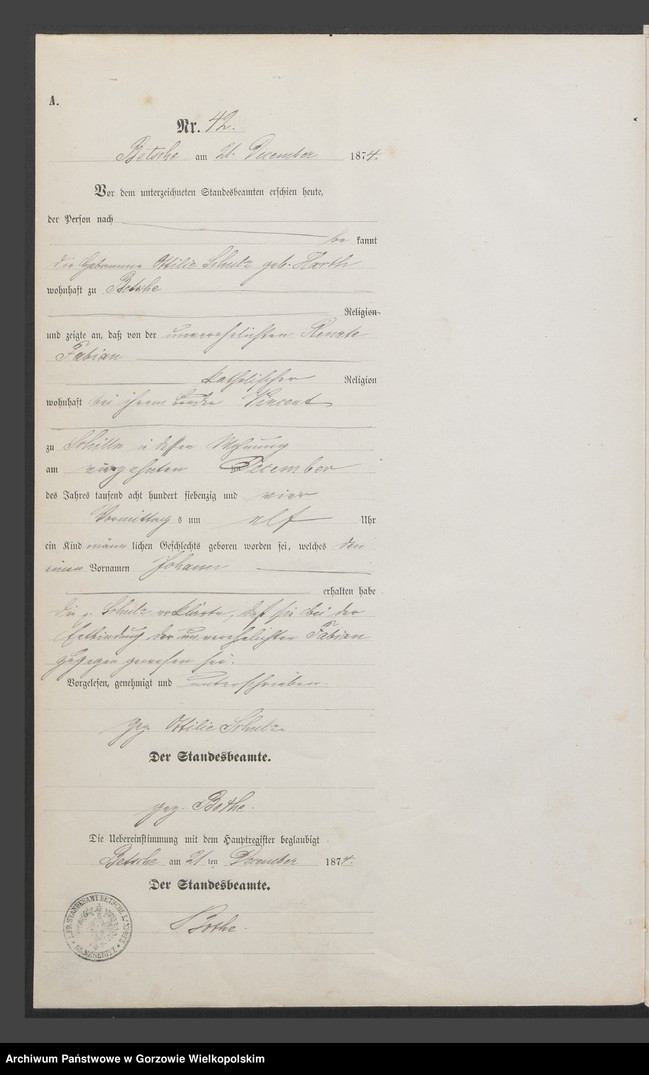 A.
Nr. 42.
Betsche am 21. December 1874.
Vor dem unterzeichneten Standesbeamten erschien heute,
der Person nach
be kannt
die Hebamme Ottilie Schulz geb. Harth
wohnhaft zu Betsche
Religion
und zeigte an, daß von der unverehelichten Renate
Fabian
katholischer Religion
wohnhaft bei ihrem Bruder Vincent
zu in dessen Wohnung
am December
des Jahres tausend acht hundert siebenzig und vier
Vormittag s um elf Uhr
ein Kind männ lichen Geschlechts geboren worden sei, welches den
einen Vornamen Johann
erhalten habe
die Schulz erklärte, daß sie bei der
Entbindung der unverehelichten Fabian
zugegen gewesen sei.
Vorgelesen, genehmigt und unterschrieben
gez. Ottilie Schulz
Der Standesbeamte.
gez. Bothe.
Die Uebereinstimmung mit dem Hauptregister beglaubigt
Betsche am 21 ten December 1874.
Der Standesbeamte.
Bothe.
Archiwum Państwowe w Gorzowie Wielkopolskim